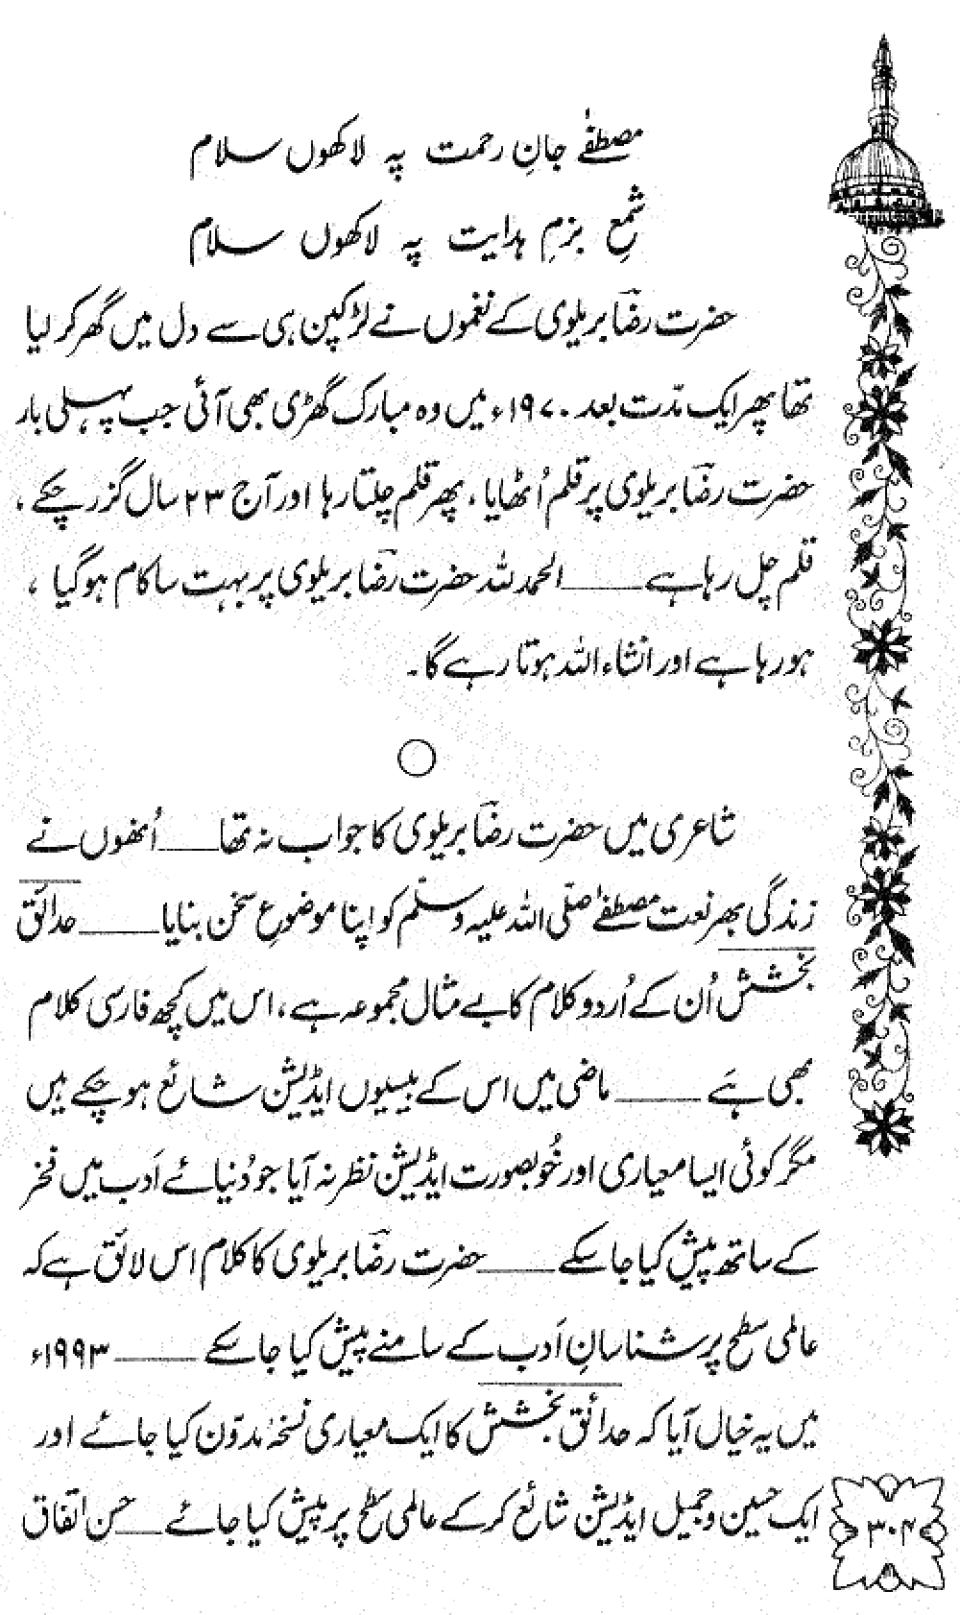 مصطفےٰ جانِ رحمت پہ لاکھوں سلام
شمعِ بزمِ ہدایت پہ لاکھوں سلام
حضرت رضؔا بریلوی کے نغموں نے لڑکپن ہی سے دل میں گھر کر لیا
تھا پھر ایک مدّت بعد ۱۹۷۰ء میں وہ مبارک گھڑی بھی آئی جب پہلی بار
حضرت رضؔا بریلوی پر قلم اُٹھایا، پھر قلم چلتا رہا اور آج ۲۳ سال گزر چکے،
قلم چل رہا ہے ــــــــ الحمد للہ حضرت رضؔا بریلوی پر بہت سا کام ہو گیا،
ہو رہا ہے اور انشاء اللہ ہوتا رہے گا۔
شاعری میں حضرت رضؔا بریلوی کا جواب نہ تھا ــــــــ اُنھوں نے
زندگی بھر نعت مصطفےٰ صلّی اللہ علیہ وسلّم کو اپنا موضوعِ سخن بنایا ــــــــ حدائق
بخشش اُن کے اُردو کلام کا بے مثال مجموعہ ہے، اس میں کچھ فارسی کلام
بھی ہَے ــــــــ ماضی میں اس کے بیسیوں ایڈیشن شائع ہو چکے ہیں
مگر کوئی ایسا معیاری اور خُوبصورت ایڈیشن نظر نہ آیا جو دُنیائے اَدب میں فخر
کے ساتھ پیش کیا جا سکے ــــــــ حضرت رضؔا بریلوی کا کلام اس لائق ہے کہ
عالمی سطح پر شناسانِ اَدب کے سامنے پیش کیا جا سکے ــــــــ ۱۹۹۳ء
میں یہ خیال آیا کہ حدائق بخشش کا ایک معیاری نسخہ مُدوّن کیا جائے اور
ایک حسین و جمیل ایڈیشن شائع کر کے عالمی سطح پر پیش کیا جائے ــــــــ حسن اتّفاق
۳۰۴